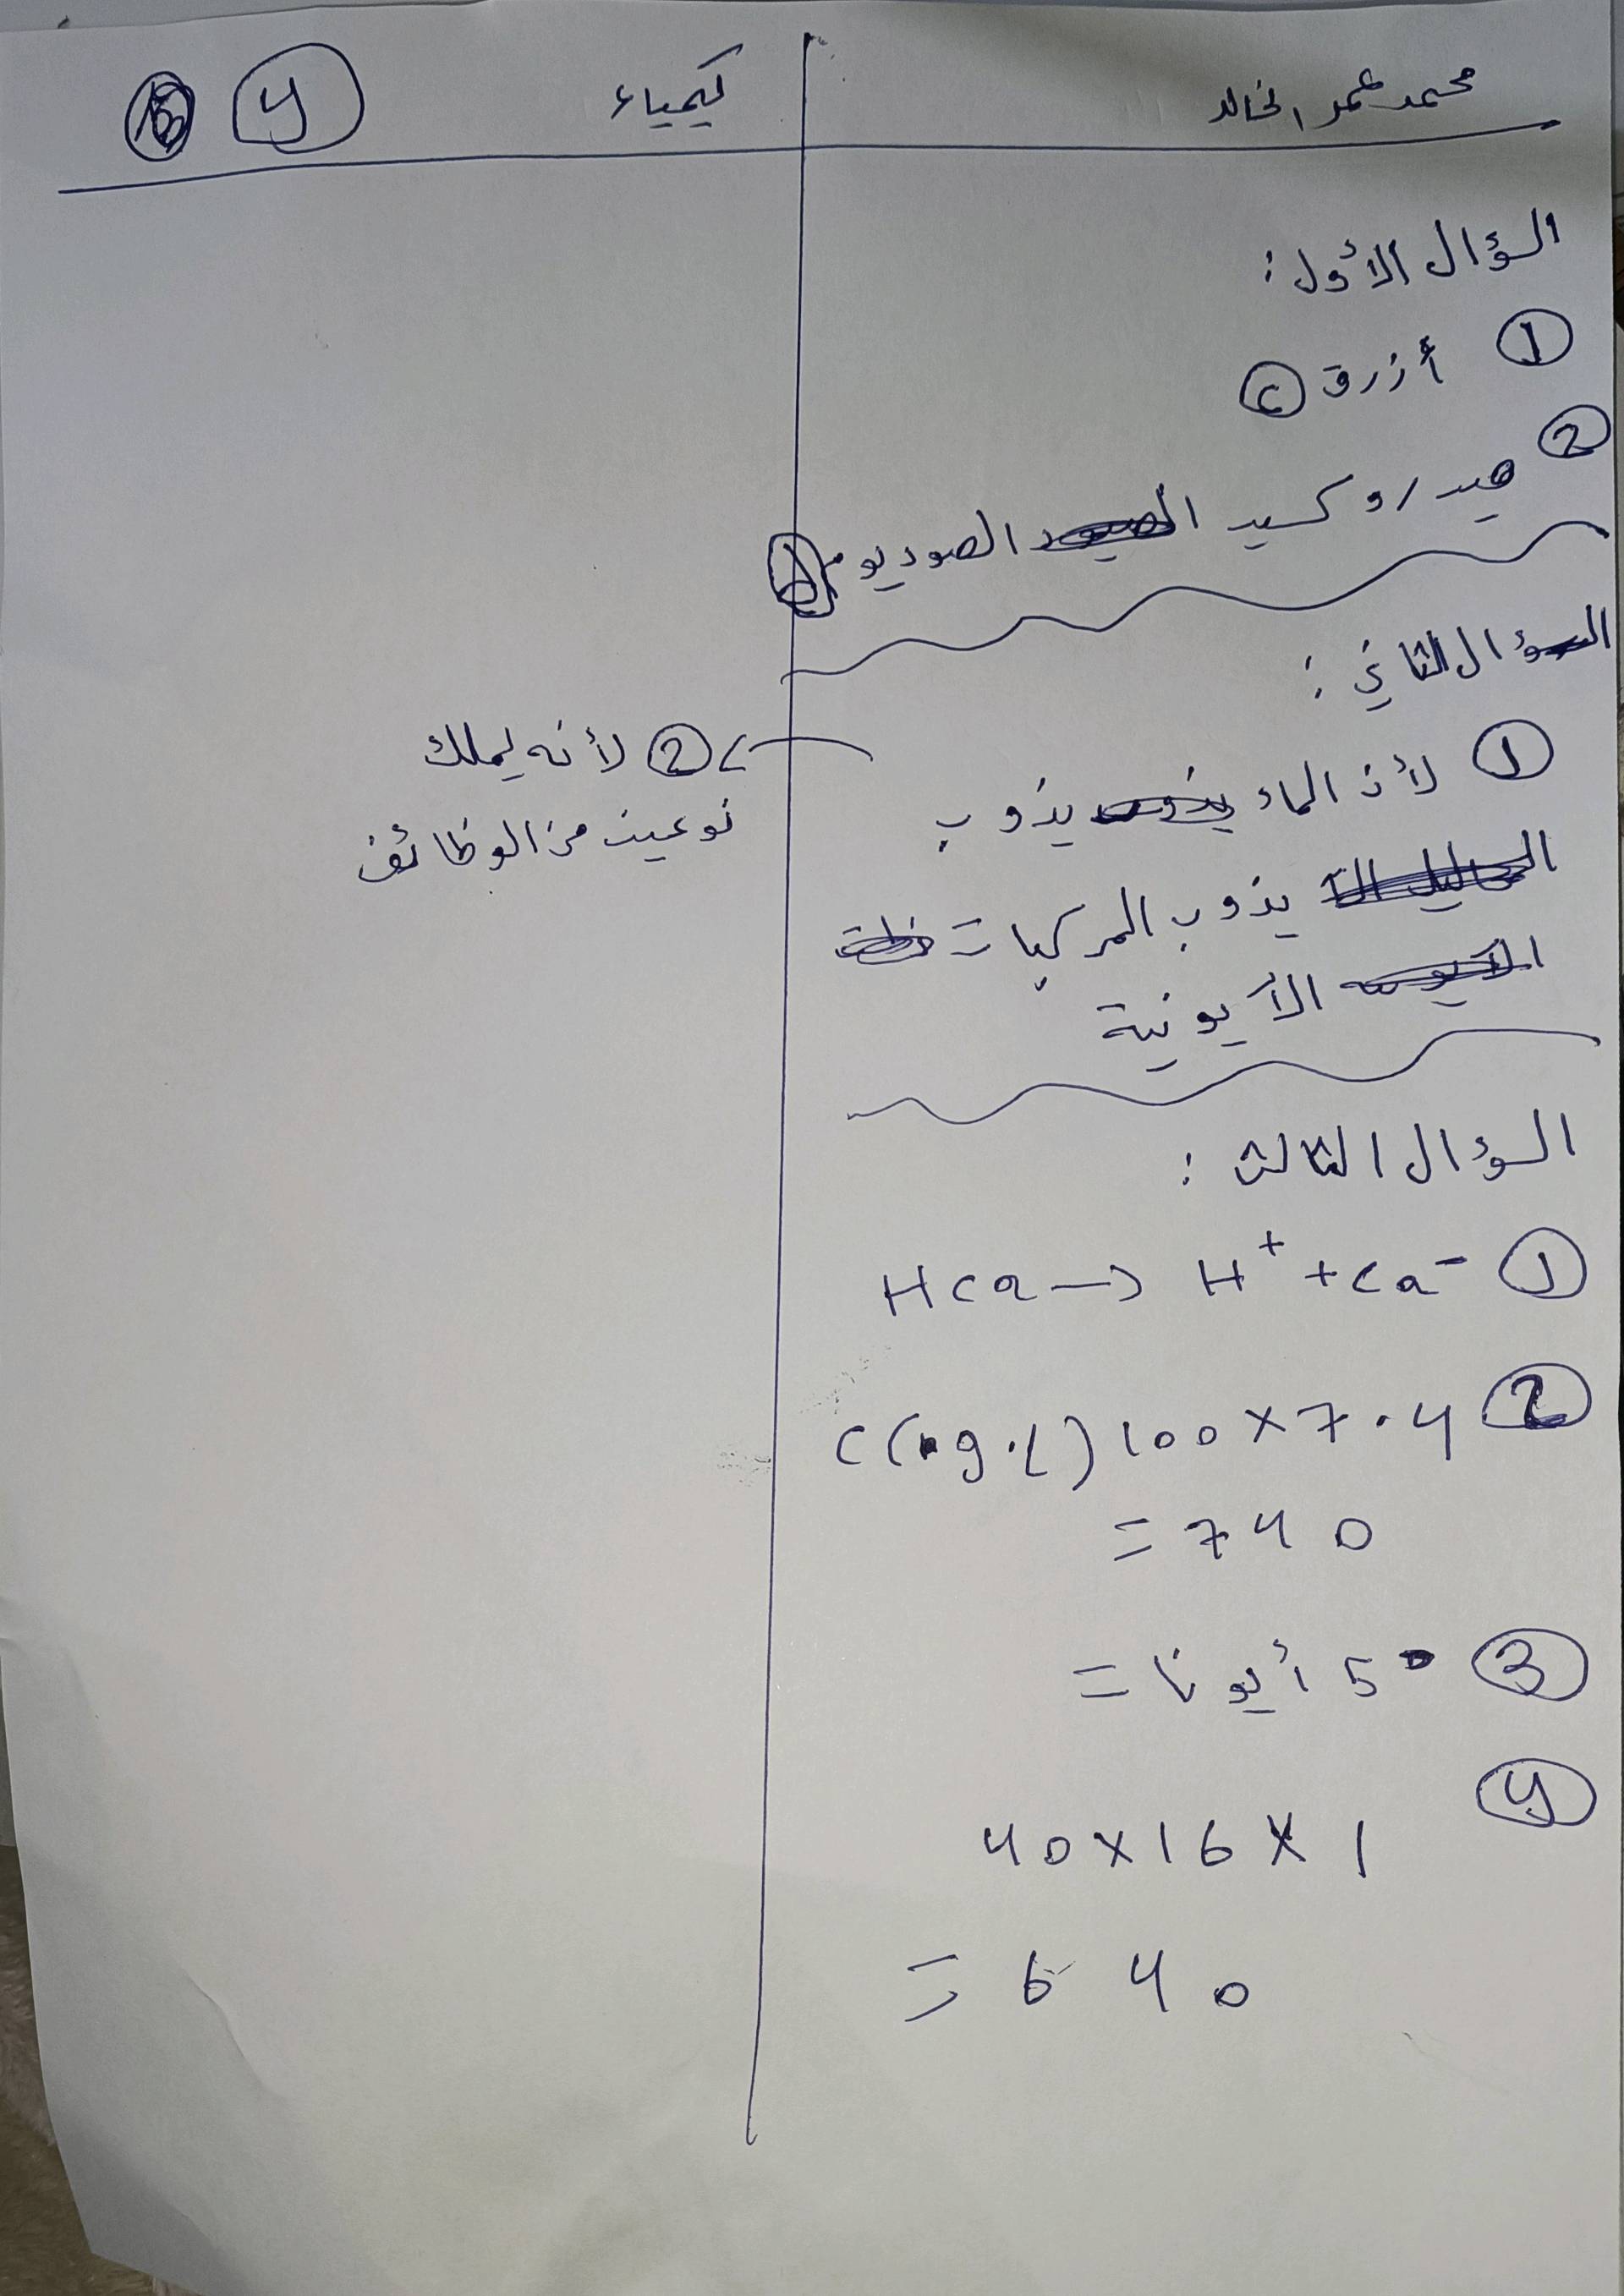 محمد عمر الخالد
كيمياء
4
السؤال الأول:
1 أزرق c
2 هيدروكسيد الصوديوم
السؤال الثاني:
1 لأن الماء يذوب
يذوب المركبات
الأيونية
2 لأنه يملك
نوعين من الوظائف
السؤال الثالث:
1 HCa → H⁺ + Ca⁻
2 C(g.L) 100 × 7.4
= 740
3 5 أيونا =
4
40 × 16 × 1
= 640